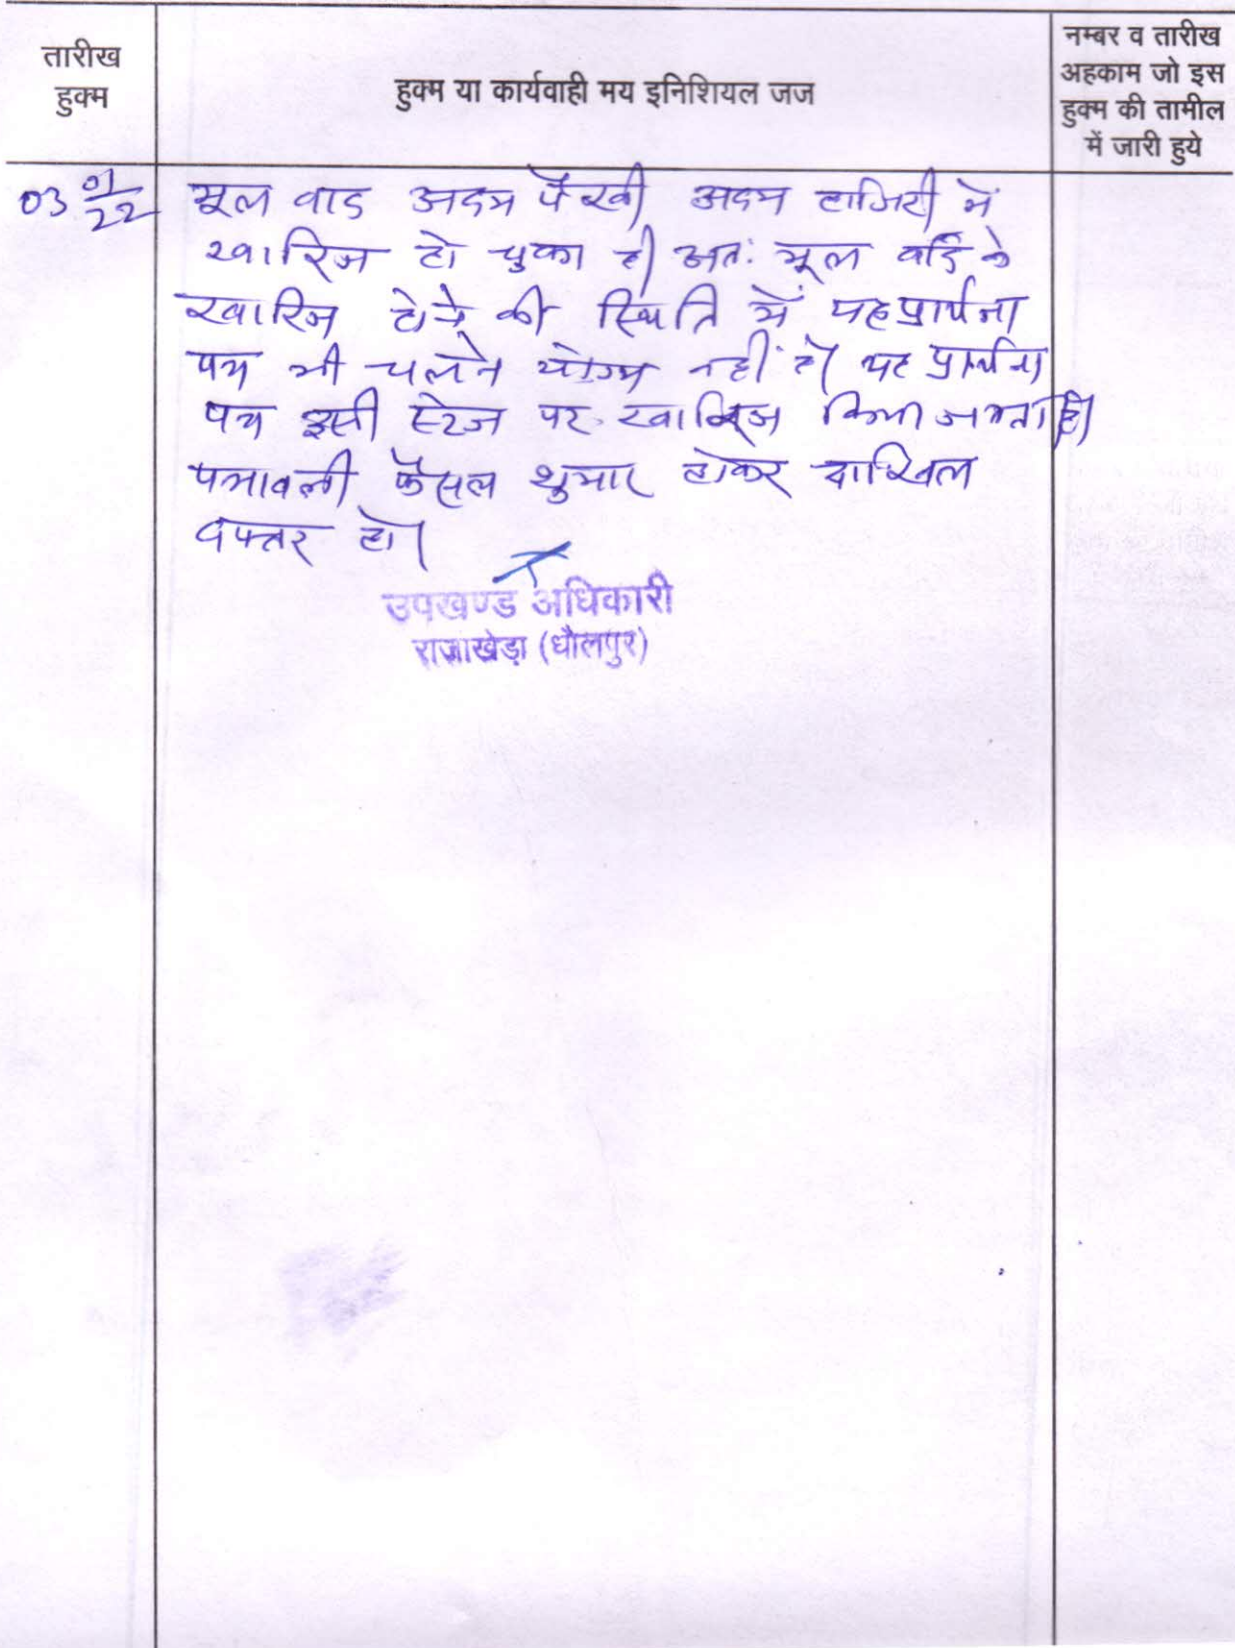 तारीख
हुक्म
हुक्म या कार्यवाही मय इनिशियल जज
नम्बर व तारीख
अहकाम जो इस
हुक्म की तामील
में जारी हुये
03 01/22
मूल वाद अदम पैरवी अदम हाजिरी में
खारिज हो चुका है। अतः मूल वाद के
खारिज होने की स्थिति में यह प्रार्थना
पत्र भी चलने योग्य नहीं है। यह प्रार्थना
पत्र इसी स्टेज पर खारिज किया जाता है।
पत्रावली फैसल शुमार होकर दाखिल
दफ्तर हो।
उपखण्ड अधिकारी
राजाखेड़ा (धौलपुर)